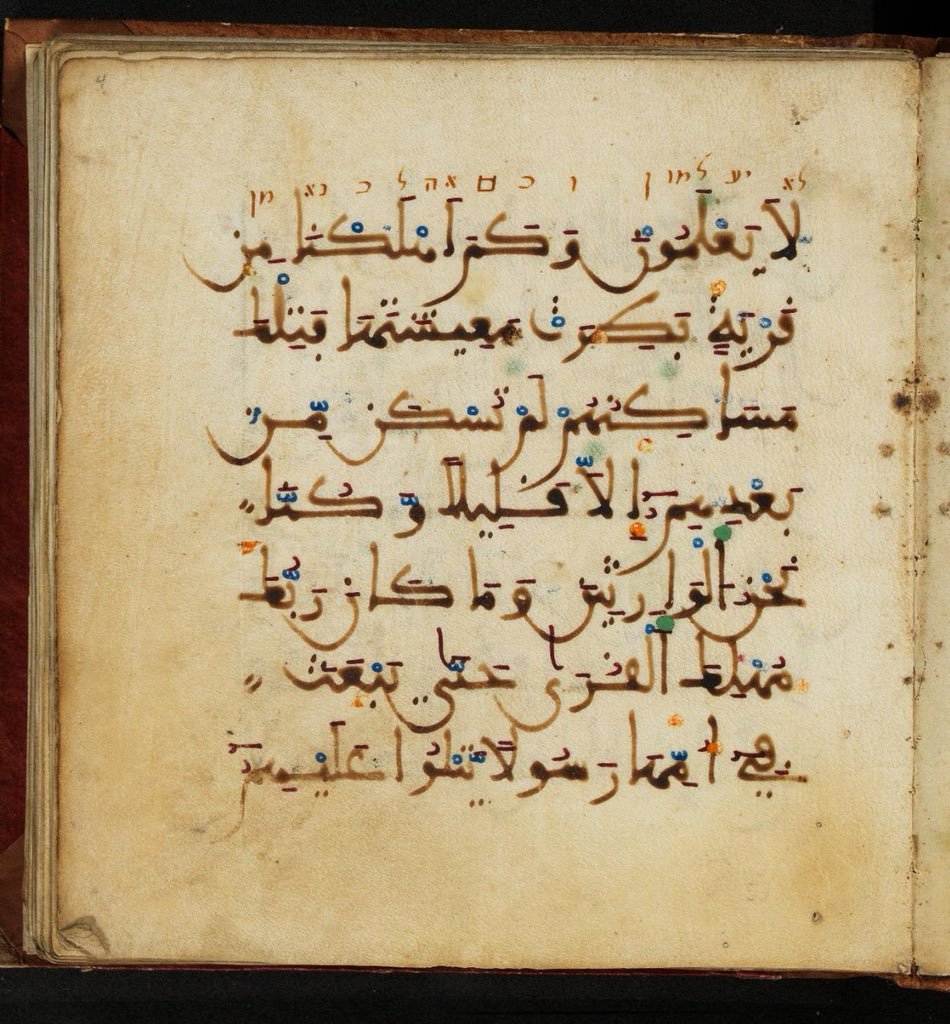 4
לא יעלמון וכם אהלכנא מן
لَا يَعْلَمُونَ وَكَمَ اهْلَكْنَا مِن
قَرْيَةٍ بَطِرَتْ مَعِيشَتَهَا فَتِلْكَ
مَسَاكِنُهُمْ لَمْ تُسْكَن مِّنْ
بَعْدِهِمُ إِلَّا قَلِيلًا وَكُنَّا
نَحْنُ الْوَارِثِينَ وَمَا كَانَ رَبُّكَ
مُهْلِكَ الْقُرَى حَتَّى يَبْعَثَ
فِي أُمِّهَا رَسُولًا يَتْلُوا عَلَيْهِمُ